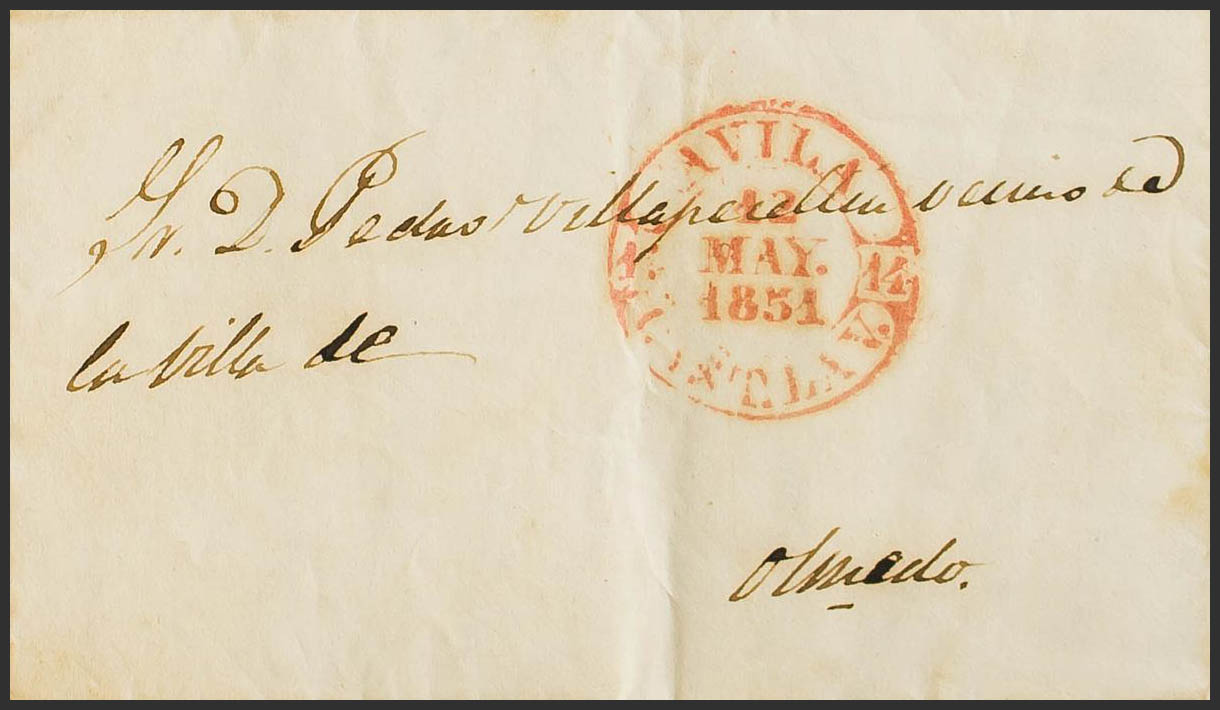 Sr. D. Pedro Villapecellin vecino de
la villa de
Olmedo.
AVILA
12
MAY.
1851
14
CAST.LA V.